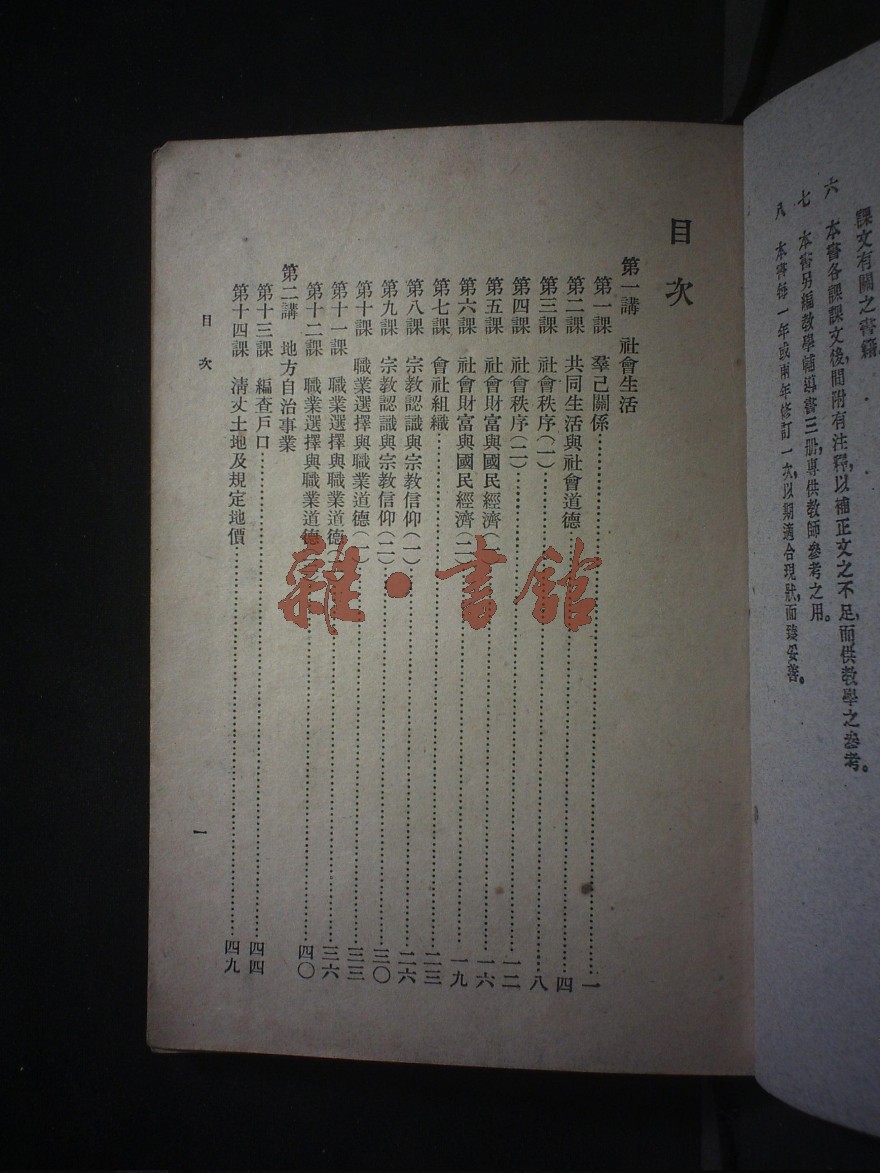 課文有關之書籍。
六　本書各課課文後,間附有注釋,以補正文之不足,而供教學之參考。
七　本書另編教學輔導書三册,專供教師參考之用。
八　本書每一年或兩年修訂一次,以期適合現狀,而臻妥善。
目次
第一講　社會生活
第一課　羣己關係…………一
第二課　共同生活與社會道德…………四
第三課　社會秩序(一)…………八
第四課　社會秩序(二)…………一二
第五課　社會財富與國民經濟(一)…………一六
第六課　社會財富與國民經濟(二)…………一九
第七課　會社組織…………二三
第八課　宗教認識與宗教信仰(一)…………二六
第九課　宗教認識與宗教信仰(二)…………三〇
第十課　職業選擇與職業道德(一)…………三三
第十一課　職業選擇與職業道德…………三六
第十二課　職業選擇與職業道德…………四〇
第二講　地方自治事業
第十三課　編查戶口…………四四
第十四課　清丈土地及規定地價…………四九
目次
一
雜·書館